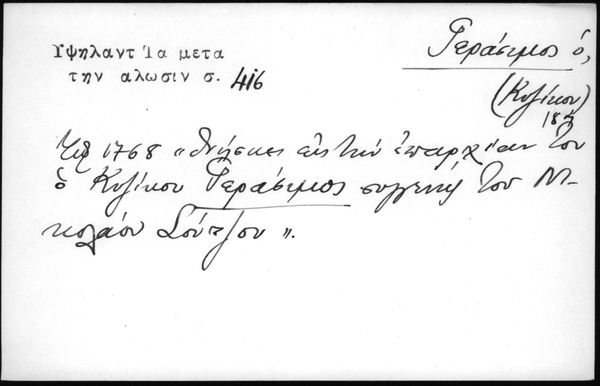 Υψηλαντ Ἰα μετα
την αλωσιν σ. 416
Γεράσιμος ὁ,
(Κυζίκου)
18
Τῷ 1768 "θνήσκει εἰς τὴν ἐπαρχίαν του
ὁ Κυζίκου Γεράσιμος συγγενὴς τοῦ Νι-
κολάου Σούτζου".